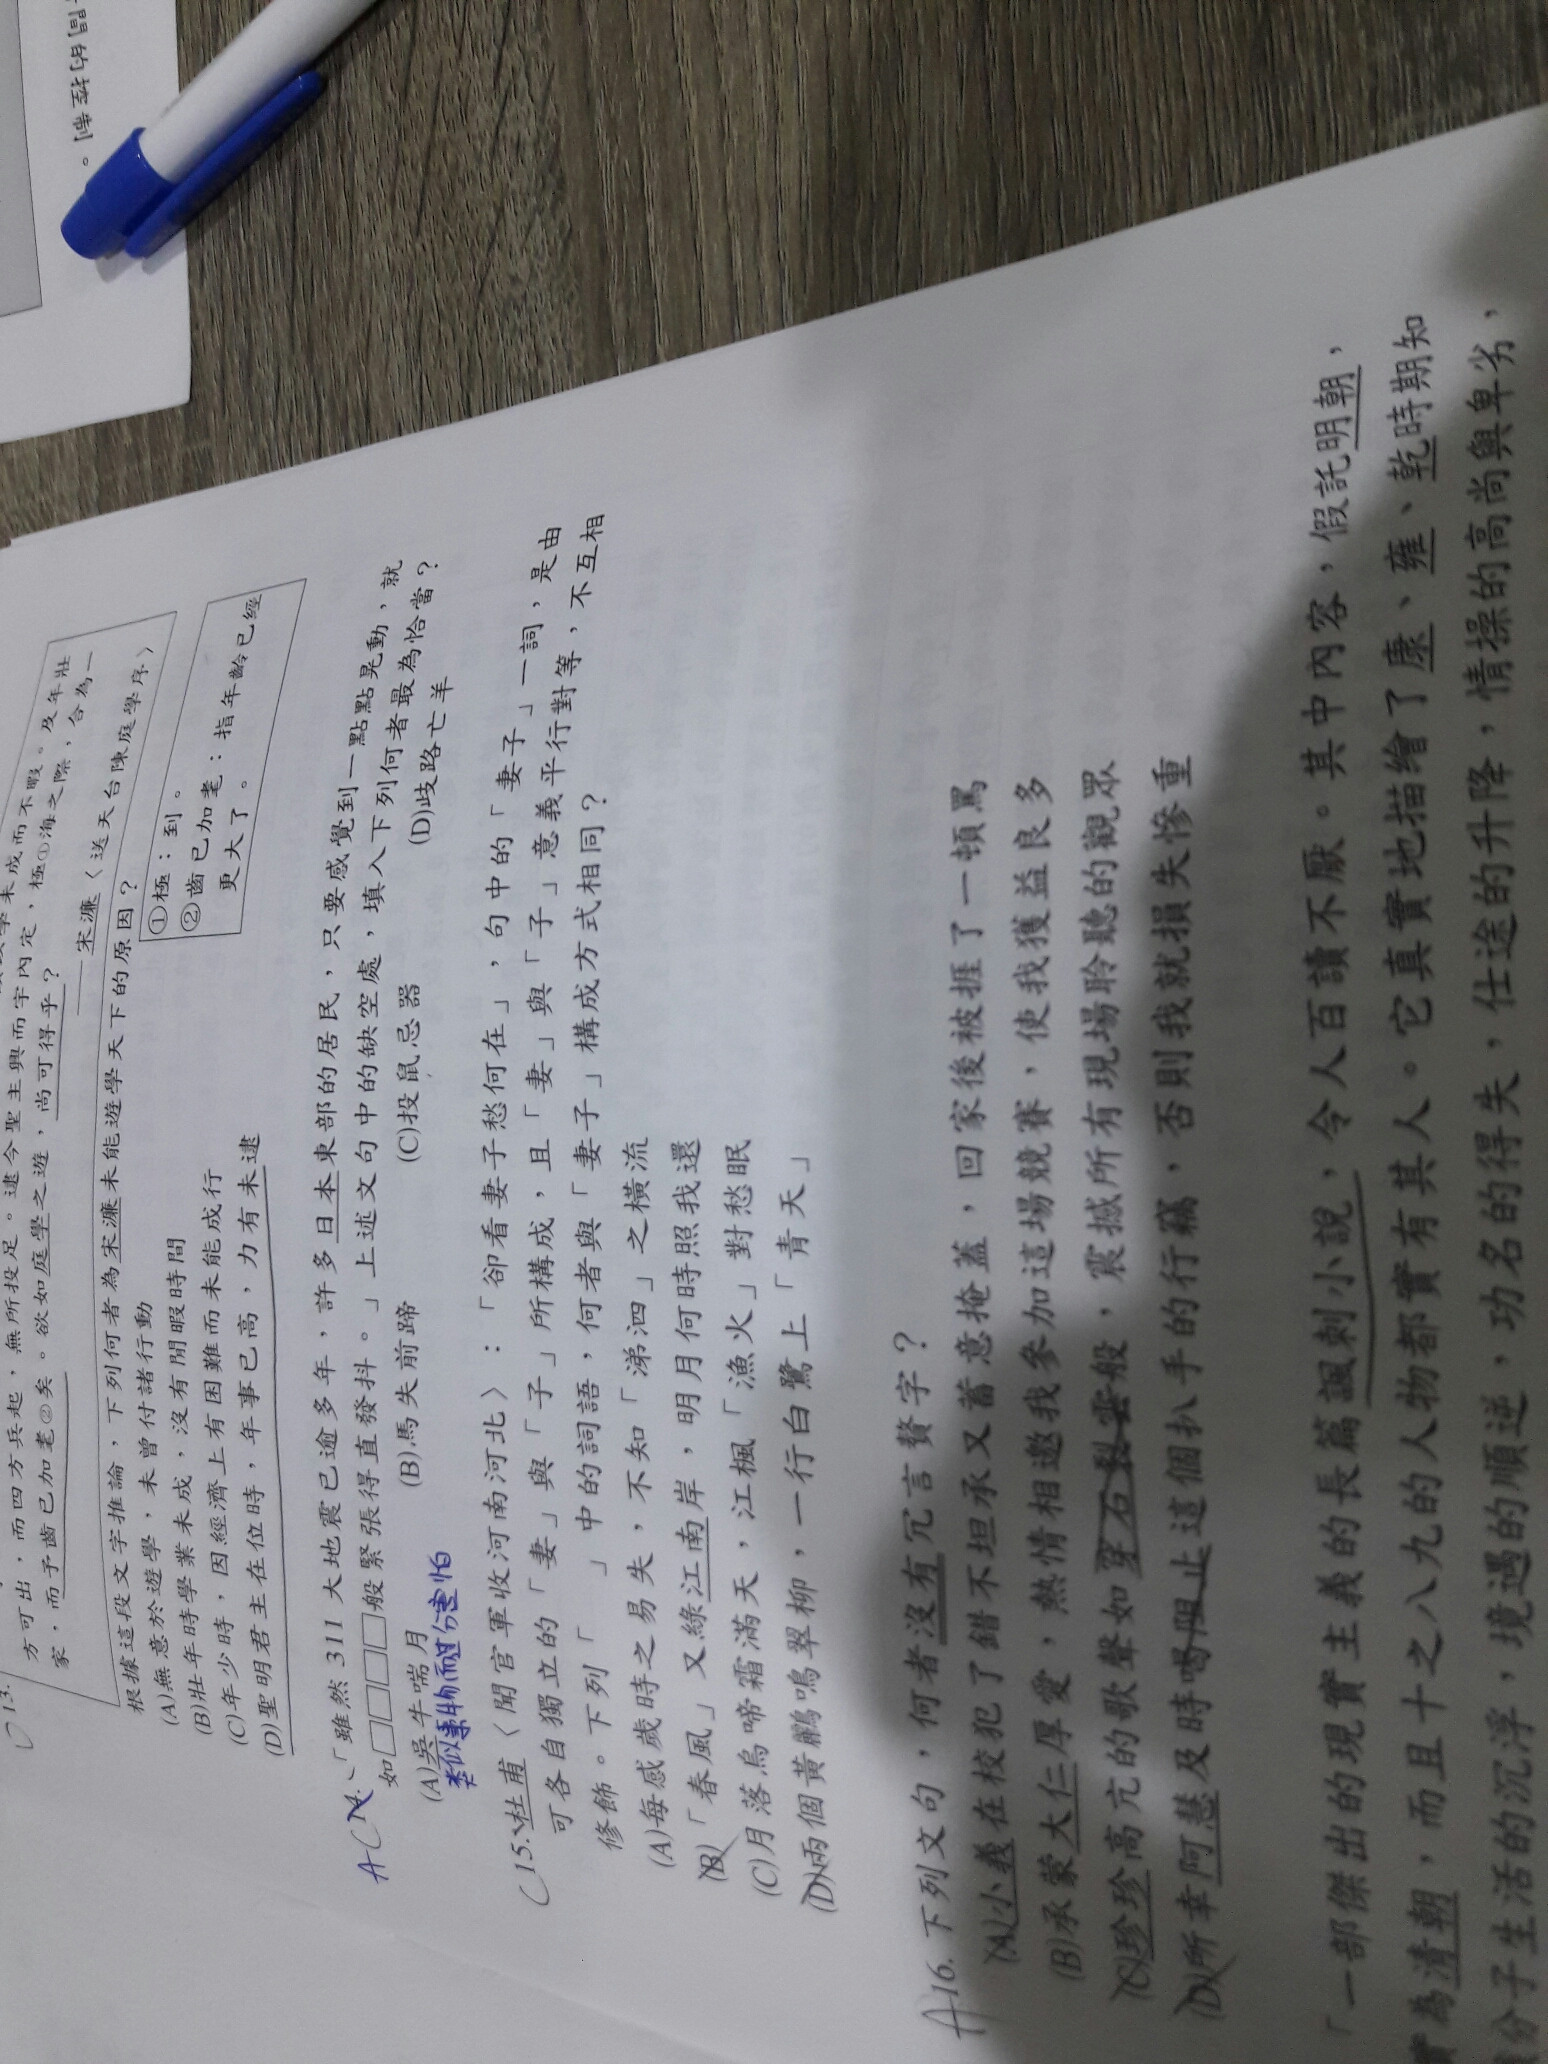 成而不暇。及年壯
方可出，而四方兵起，無所投足。逮今聖主興而宇內定，極①海之際，合為一
家，而予齒已加耄②矣。欲如庭學之遊，尚可得乎？
——宋濂〈送天台陳庭學序〉
①極：到。
②齒已加耄：指年齡已經
更大了。
13.
根據這段文字推論，下列何者為宋濂未能遊學天下的原因？
(A)無意於遊學，未曾付諸行動
(B)壯年時學業未成，沒有閒暇時間
(C)年少時，因經濟上有困難而未能成行
(D)聖明君主在位時，年事已高，力有未逮
A C 14.「雖然 311 大地震已逾多年，許多日本東部的居民，只要感覺到一點點晃動，就
如□□□□般緊張得直發抖。」上述文句中的缺空處，填入下列何者最為恰當？
(A)吳牛喘月 (B)馬失前蹄 (C)投鼠忌器 (D)歧路亡羊
类似事物而过分害怕
C 15.杜甫〈聞官軍收河南河北〉：「卻看妻子愁何在」，句中的「妻子」一詞，是由
可各自獨立的「妻」與「子」所構成，且「妻」與「子」意義平行對等，不互相
修飾。下列「　」中的詞語，何者與「妻子」構成方式相同？
(A)每感歲時之易失，不知「涕泗」之橫流
(B)「春風」又綠江南岸，明月何時照我還
(C)月落烏啼霜滿天，江楓「漁火」對愁眠
(D)兩個黃鸝鳴翠柳，一行白鷺上「青天」
A 16. 下列文句，何者沒有冗言贅字？
(A)小義在校犯了錯不坦承又蓄意掩蓋，回家後被捱了一頓罵
(B)承蒙大仁厚愛，熱情相邀我參加這場競賽，使我獲益良多
(C)珍珍高亢的歌聲如穿石裂雲般，震撼所有現場聆聽的觀眾
(D)所幸阿慧及時喝阻止這個扒手的行竊，否則我就損失慘重
「一部傑出的現實主義的長篇諷刺小說，令人百讀不厭。其中內容，假託明朝，
實為清朝，而且十之八九的人物都實有其人。它真實地描繪了康、雍、乾時期知
分子生活的沉浮，境遇的順逆，功名的得失，仕途的升降，情操的高尚與卑劣，